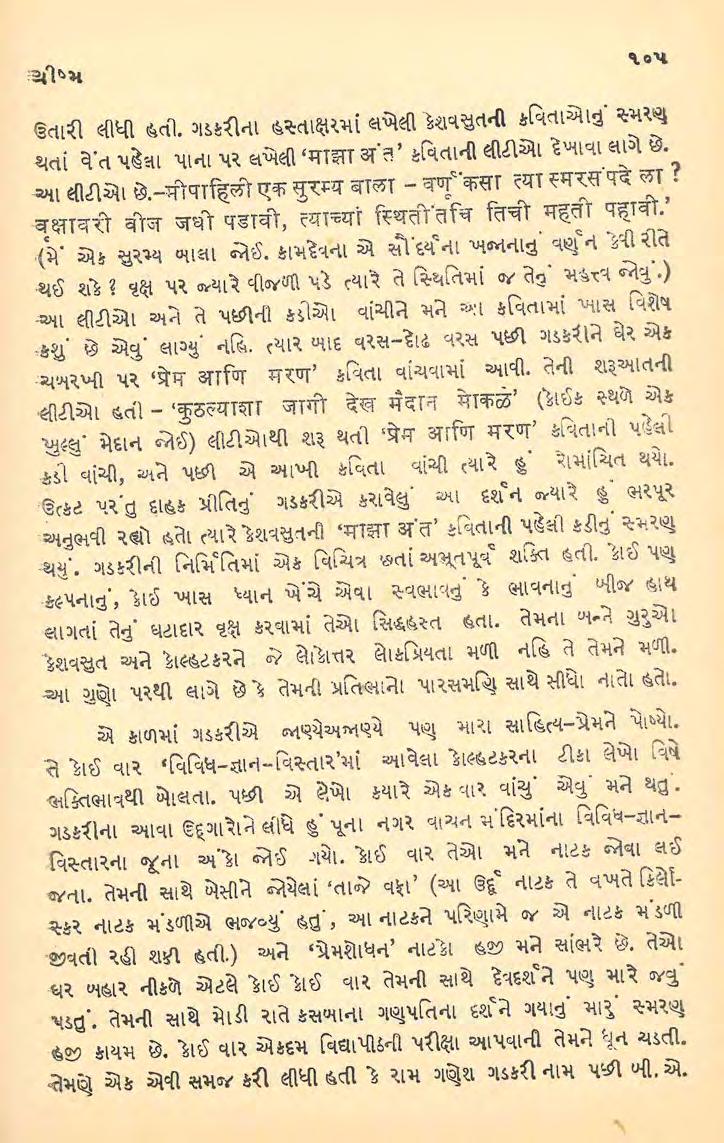 ૧૦૫
ગ્રીષ્મ
ઉતારી લીધી હતી. ગડકરીના હસ્તાક્ષરમાં લખેલી કેશવસુતની કવિતાઓનું સ્મરણ
થતાં વેંત પહેલા પાના પર લખેલી ‘माझा अंत’ કવિતાની લીટીઓ દેખાવા લાગે છે.
આ લીટીઓ છે.–मीपाहिली एक सुरम्य बाला – वर्णूं कसा त्या स्मरसंपदे ला ?
वृक्षावरी वीज जधी पडावी, त्याच्यां स्थितीतचि तिची महती पहावी.’
(મેં એક સુરમ્ય બાલા જોઈ. કામદેવના એ સૌંદર્યના ખજાનાનું વર્ણન કેવી રીતે
થઈ શકે ? વૃક્ષ પર જ્યારે વીજળી પડે ત્યારે તે સ્થિતિમાં જ તેનું મહત્ત્વ જોવું.)
આ લીટીઓ અને તે પછીની કડીઓ વાંચીને મને આ કવિતામાં ખાસ વિશેષ
કશું છે એવું લાગ્યું નહિ. ત્યાર બાદ વરસ–દોઢ વરસ પછી ગડકરીને ઘેર એક
ચબરખી પર ‘प्रेम आणि मरण’ કવિતા વાંચવામાં આવી. તેની શરૂઆતની
લીટીઓ હતી – ‘कुठल्याशा जागी देख मैदान मोकळे’ (કોઈક સ્થળે એક
ખુલ્લું મેદાન જોઈ) લીટીઓથી શરૂ થતી ‘प्रेम आणि मरण’ કવિતાની પહેલી
કડી વાંચી, અને પછી એ આખી કવિતા વાંચી ત્યારે હું રોમાંચિત થયો.
ઉત્કટ પરંતુ દાહક પ્રીતિનું ગડકરીએ કરાવેલું આ દર્શન જ્યારે હું ભરપૂર
અનુભવી રહ્યો હતો ત્યારે કેશવસુતની ‘माझा अंत’ કવિતાની પહેલી કડીનું સ્મરણ
થયું. ગડકરીની નિર્મિતિમાં એક વિચિત્ર છતાં અભૂતપૂર્વ શક્તિ હતી. કોઈ પણ
કલ્પનાનું, કોઈ ખાસ ધ્યાન ખેંચે એવા સ્વભાવનું કે ભાવનાનું બીજ હાથ
લાગતાં તેનું ઘટાદાર વૃક્ષ કરવામાં તેઓ સિદ્ધહસ્ત હતા. તેમના બન્ને ગુરુઓ
કેશવસુત અને કોલ્હટકરને જે લોકોત્તર લોકપ્રિયતા મળી નહિ તે તેમને મળી.
આ ગુણો પરથી લાગે છે કે તેમની પ્રતિભાનો પારસમણિ સાથે સીધો નાતો હતો.
એ કાળમાં ગડકરીએ જાણ્યેઅજાણ્યે પણ મારા સાહિત્ય–પ્રેમને પોષ્યો.
તે કોઈ વાર ‘વિવિધ–જ્ઞાન–વિસ્તાર’માં આવેલા કોલ્હટકરના ટીકા લેખો વિષે
ભક્તિભાવથી બોલતા. પછી એ લેખો ક્યારે એક વાર વાંચું એવું મને થતું.
ગડકરીના આવા ઉદ્ગારોને લીધે હું પૂના નગર વાચન મંદિરમાંના વિવિધ–જ્ઞાન–
વિસ્તારના જૂના અંકો જોઈ ગયો. કોઈ વાર તેઓ મને નાટક જોવા લઈ
જતા. તેમની સાથે બેસીને જોયેલાં ‘તાજે વફા’ (આ ઉર્દૂ નાટક તે વખતે કિર્લો-
સ્કર નાટક મંડળીએ ભજવ્યું હતું, આ નાટકને પરિણામે જ એ નાટક મંડળી
જીવતી રહી શકી હતી.) અને ‘પ્રેમશોધન’ નાટકો હજી મને સાંભરે છે. તેઓ
ઘર બહાર નીકળે એટલે કોઈ કોઈ વાર તેમની સાથે દેવદર્શને પણ મારે જવું
પડતું. તેમની સાથે મોડી રાતે કસબાના ગણપતિના દર્શને ગયાનું મારું સ્મરણ
હજી કાયમ છે. કોઈ વાર એકદમ વિદ્યાપીઠની પરીક્ષા આપવાની તેમને ધૂન ચડતી.
તેમણે એક એવી સમજ કરી લીધી હતી કે રામ ગણેશ ગડકરી નામ પછી બી. એ.